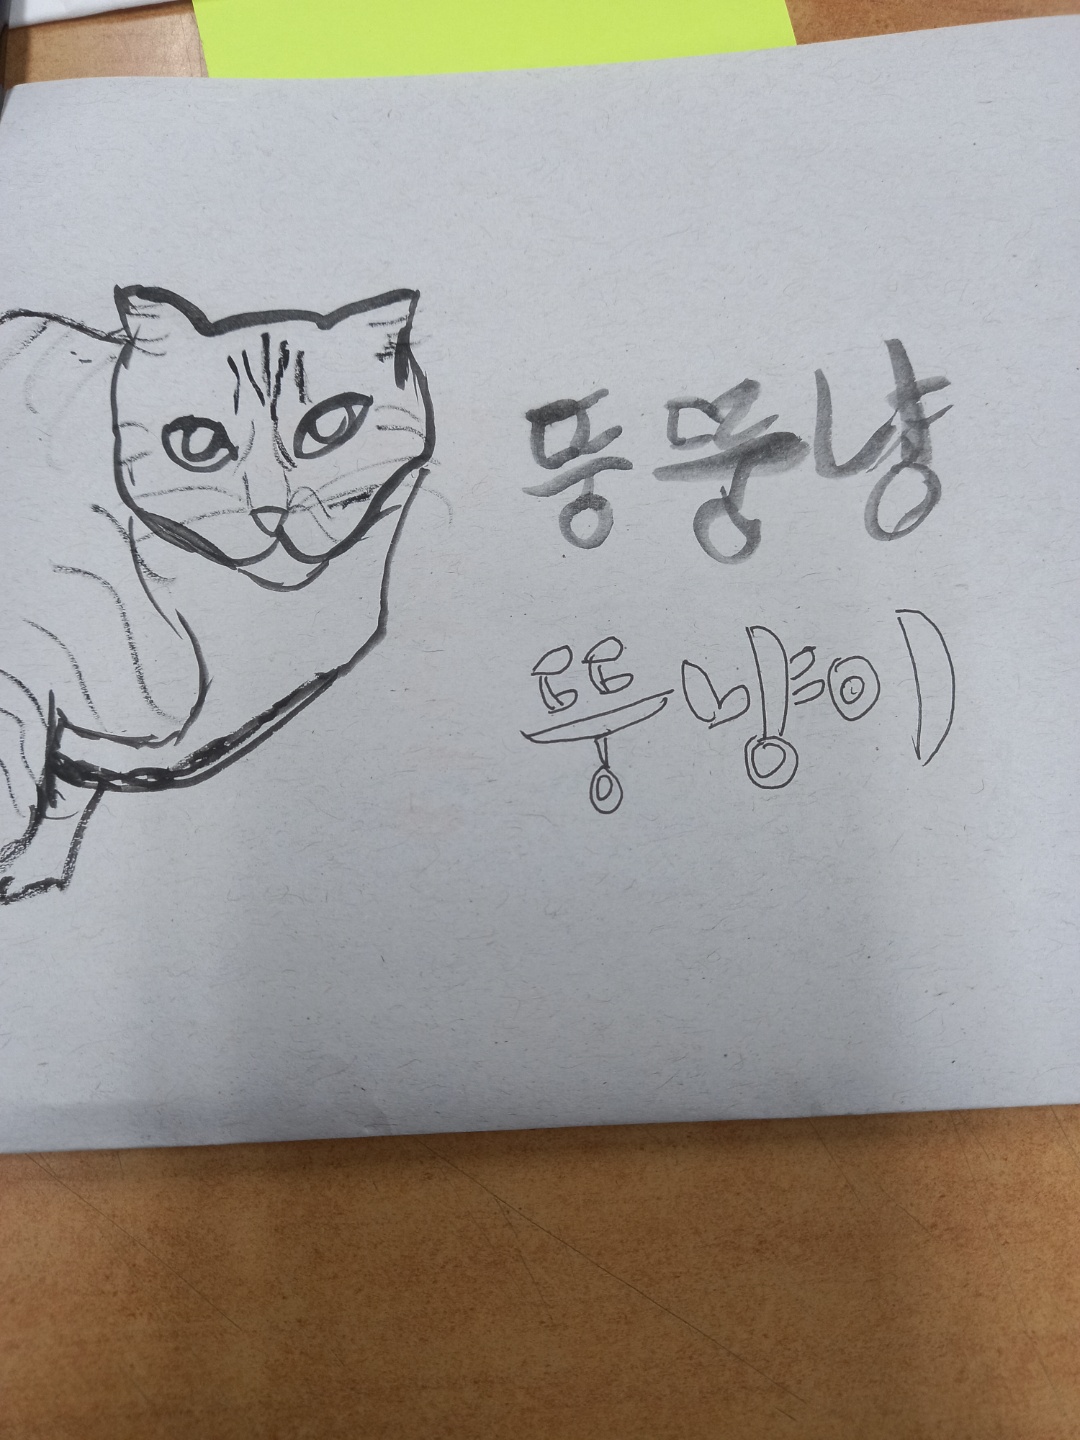 뚱뚱냥
뚱냥이